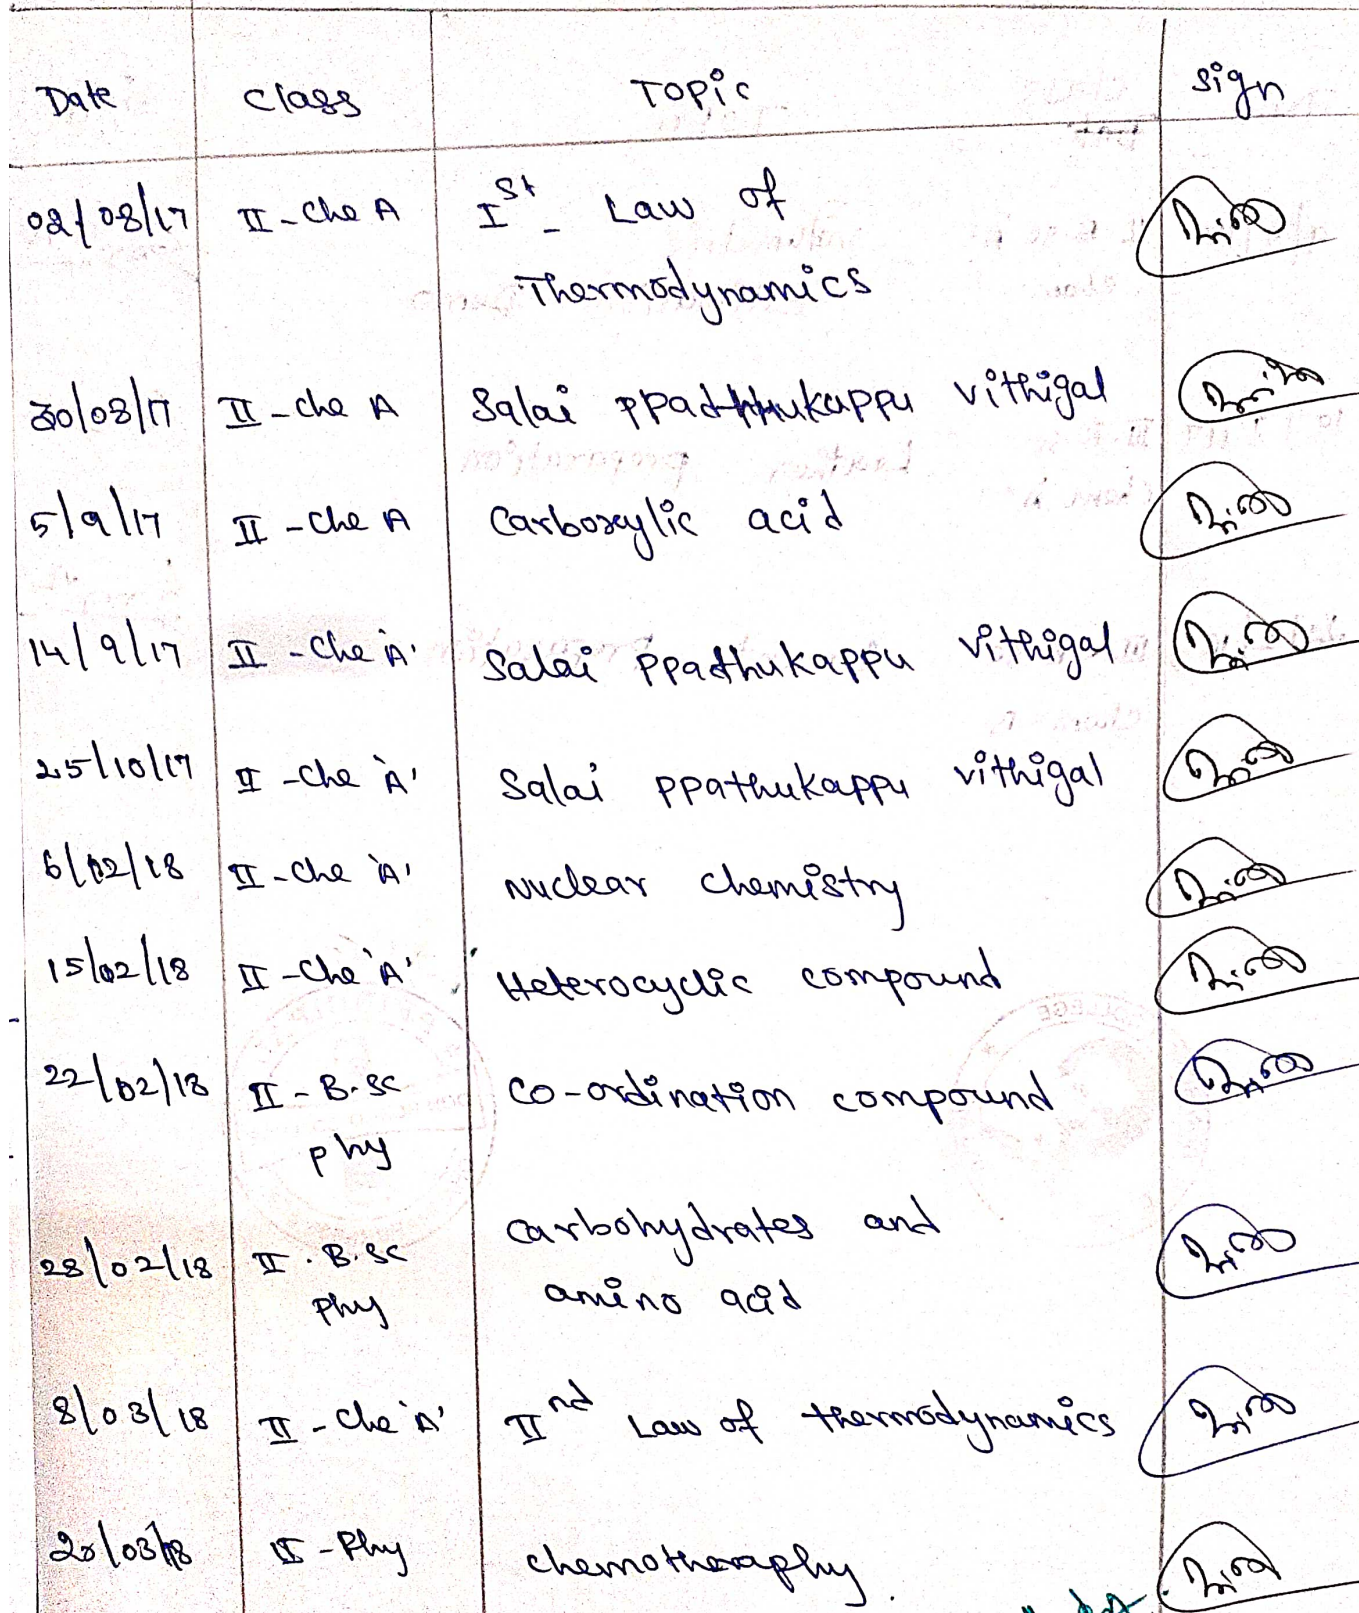 Date Class Topic Sign
02/08/17 II - Che A Ist - Law of
Thermodynamics
30/08/17 II - Che A Salai ppathukappu vithigal
5/9/17 II - Che A Carboxylic acid
14/9/17 II - Che 'A' Salai ppathukappu vithigal
25/10/17 II - Che 'A' Salai ppathukappu vithigal
6/02/18 II - Che 'A' Nuclear chemistry
15/02/18 II - Che 'A' Heterocyclic compound
22/02/18 II - B.Sc Co-ordination compound
phy
Carbohydrates and
28/02/18 II . B.Sc amino acid
phy
8/03/18 II - Che 'A' IInd Law of thermodynamics
20/03/18 II - Phy chemotheraphy.